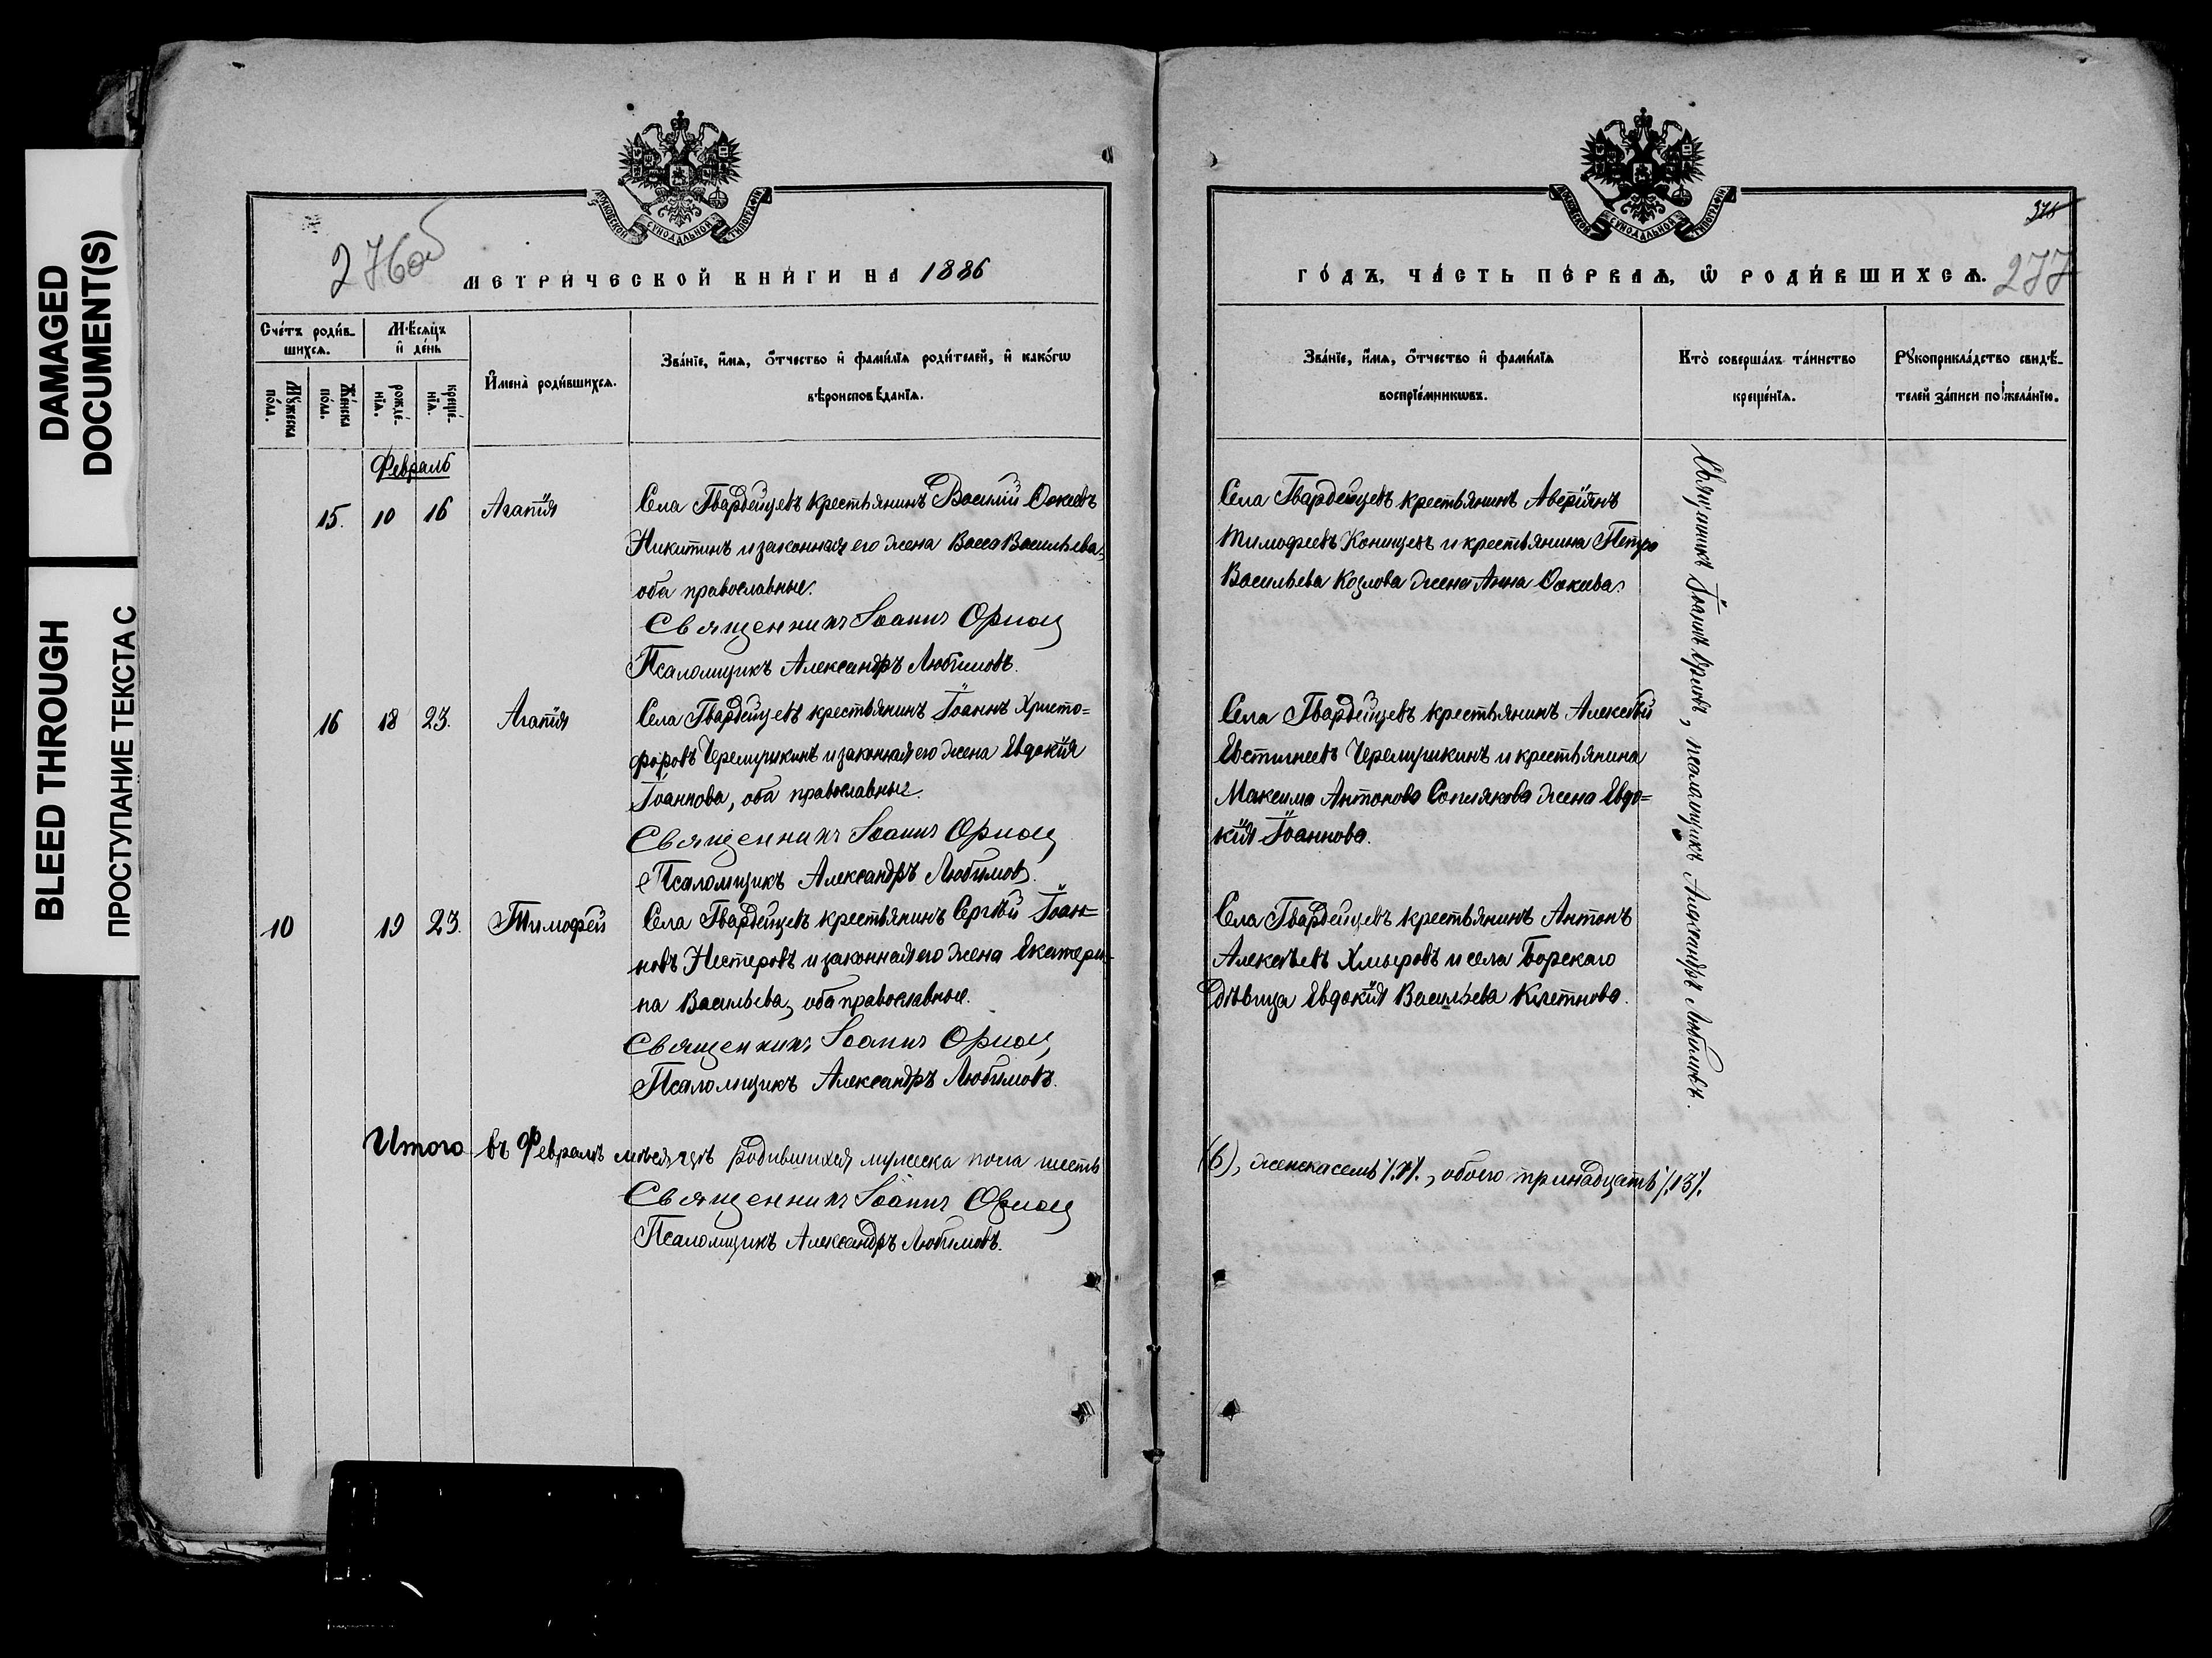 DAMAGED
DOCUMENT(S)
BLEED THROUGH
ПРОСТУПАНИЕ ТЕКСТА С
МОСКОВСКОЙ СѴНОДАЛЬНОЙ ТИПОГРАФІИ
276об
МЕТРИ́ЧЕСКОЙ КНИ́ГИ НА 1886
Сче́тъ роди́в-
шихсѧ.
Мѣ́сѧцъ
и҆ де́нь
Мꙋ́жеска
по́ла.
Же́нска
по́ла.
рожде́-
нїѧ.
креще́-
нїѧ.
И҆мена̀ роди́вшихсѧ.
Зва́нїе, и҆́мѧ, ѻ҆́тчество и҆ фами́лїѧ роди́телей, и҆ како́гѡ
вѣроисповѣ́данїѧ.
Февраль
15. 10 16 Агапія
Села Гвардейцевъ крестьянинъ Василій
Никитинъ и законная его жена Васса Васильева,
оба православные.
Священникъ Іоаннъ
Псаломщикъ Александръ Любимовъ.
16 18 23. Агапія
Села Гвардейцевъ крестьянинъ Іоаннъ Христо=
форовъ Черемушкинъ и законная его жена Евдокія
Іоаннова, оба православные.
Священникъ Іоаннъ
Псаломщикъ Александръ Любимовъ.
10 19 23. Тимофей
Села Гвардейцевъ крестьянинъ Сергѣй Іоан=
новъ Нестеровъ и законная его жена Екатери-
на Васильева, оба православные.
Священникъ Іоаннъ
Псаломщикъ Александръ Любимовъ.
Итого въ Февралѣ мѣсяцѣ родившихся мужеска пола шесть
Священникъ Іоаннъ
Псаломщикъ Александръ Любимовъ.
МОСКОВСКОЙ СѴНОДАЛЬНОЙ ТИПОГРАФІИ
ГО́ДЪ, ЧА́СТЬ ПЕ́РВАѦ, Ѡ҆ РОДИ́ВШИХСѦ.
277
Зва́нїе, и҆́мѧ, ѻ҆́тчество и҆ фами́лїѧ
воспрїе́мникѡвъ.
Кто̀ соверша́лъ та́инство
креще́нїѧ.
Рꙋкоприкла́дство свидѣ́-
телей за́писи по жела́нїю.
Села Гвардейцевъ крестьянинъ Аверіянъ
Тимофеевъ и крестьянина Петра
Васильева Козлова жена Анна
Села Гвардейцевъ крестьянинъ Алексѣй
Евстигнеевъ Черемушкинъ и крестьянина
Максима Антонова жена Евдо=
кія Іоаннова.
Села Гвардейцевъ крестьянинъ Антонъ
Алексѣевъ Хмыровъ и села Борскаго
дѣвица Евдокія Васильева Клетнова.
Священникъ Іоаннъ псаломщикъ Александръ Любимовъ.
(6), женска семь /.7/., обоего тринадцать /.13/.